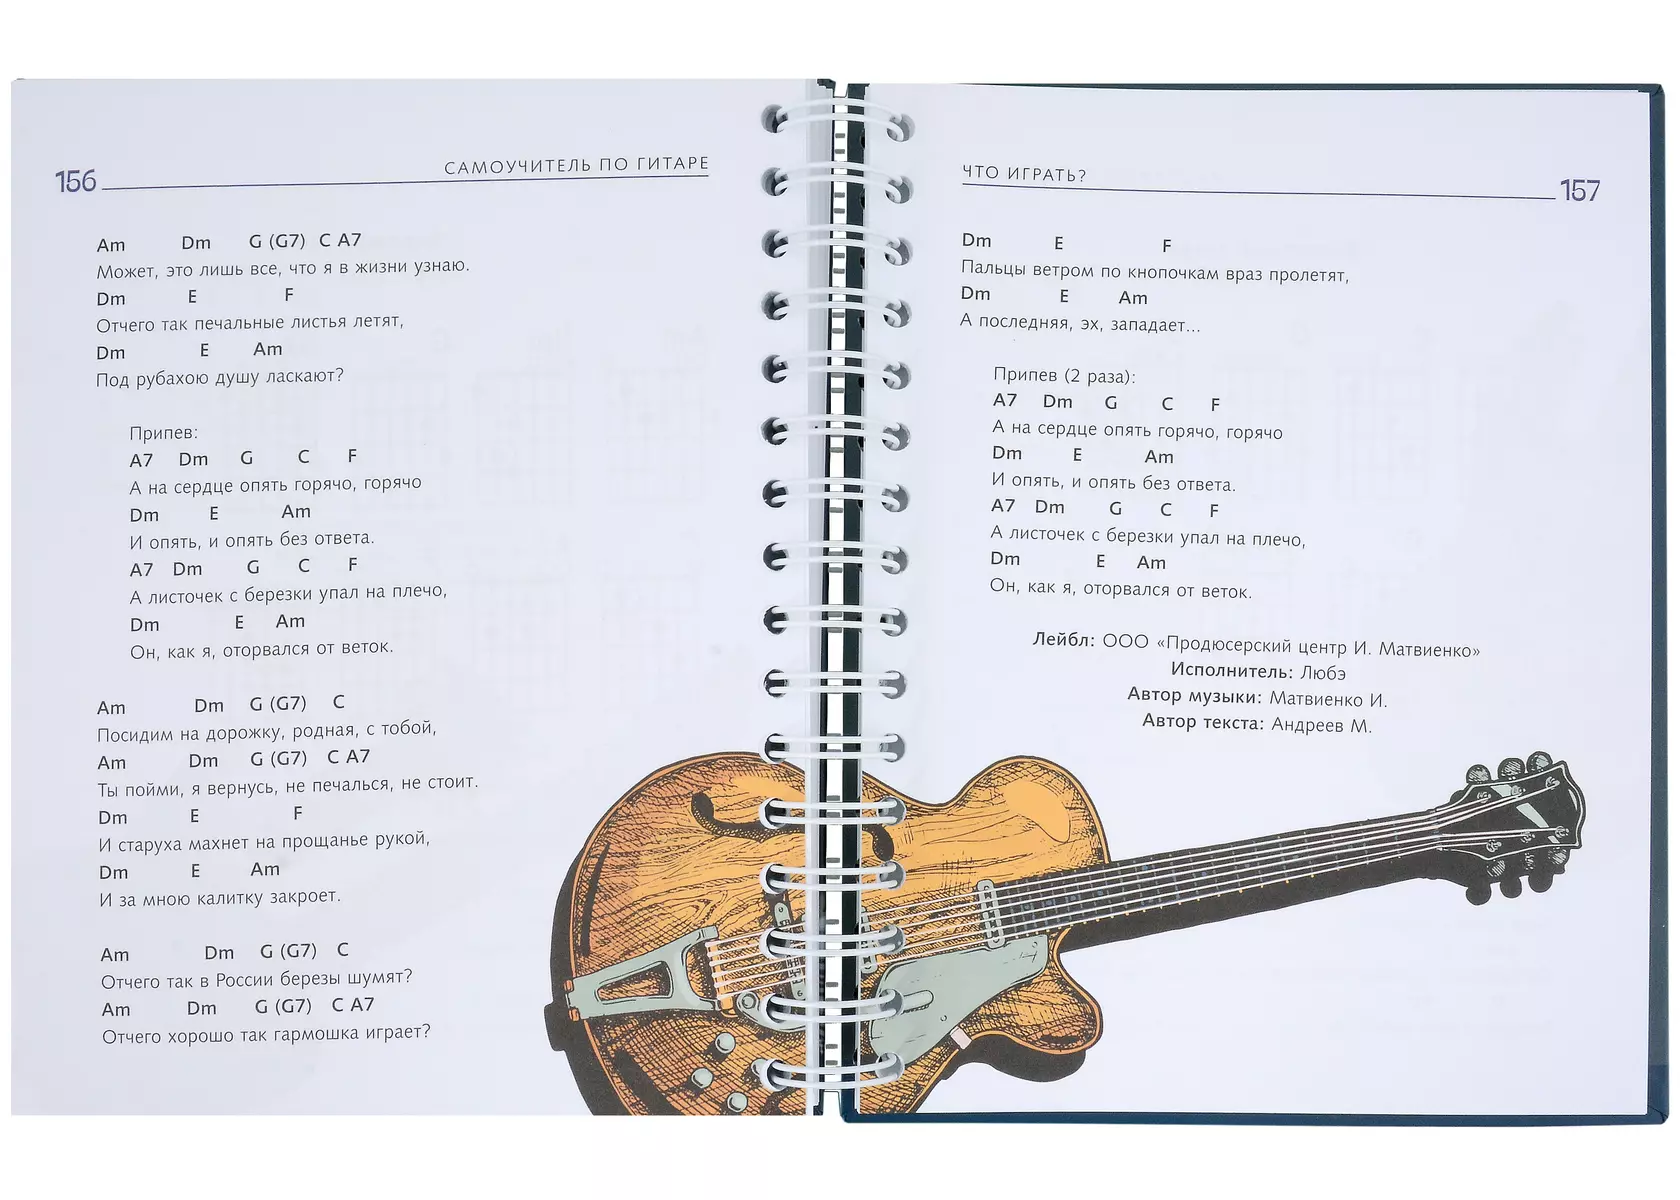 156
САМОУЧИТЕЛЬ ПО ГИТАРЕ
Am Dm G (G7) C A7
Может, это лишь все, что я в жизни узнаю.
Dm E F
Отчего так печальные листья летят,
Dm E Am
Под рубахою душу ласкают?
Припев:
A7 Dm G C F
А на сердце опять горячо, горячо
Dm E Am
И опять, и опять без ответа.
A7 Dm G C F
А листочек с березки упал на плечо,
Dm E Am
Он, как я, оторвался от веток.
Am Dm G (G7) C
Посидим на дорожку, родная, с тобой,
Am Dm G (G7) C A7
Ты пойми, я вернусь, не печалься, не стоит.
Dm E F
И старуха махнет на прощанье рукой,
Dm E Am
И за мною калитку закроет.
Am Dm G (G7) C
Отчего так в России березы шумят?
Am Dm G (G7) C A7
Отчего хорошо так гармошка играет?
ЧТО ИГРАТЬ?
157
Dm E F
Пальцы ветром по кнопочкам враз пролетят,
Dm E Am
А последняя, эх, западает...
Припев (2 раза):
A7 Dm G C F
А на сердце опять горячо, горячо
Dm E Am
И опять, и опять без ответа.
A7 Dm G C F
А листочек с березки упал на плечо,
Dm E Am
Он, как я, оторвался от веток.
Лейбл: ООО «Продюсерский центр И. Матвиенко»
Исполнитель: Любэ
Автор музыки: Матвиенко И.
Автор текста: Андреев М.